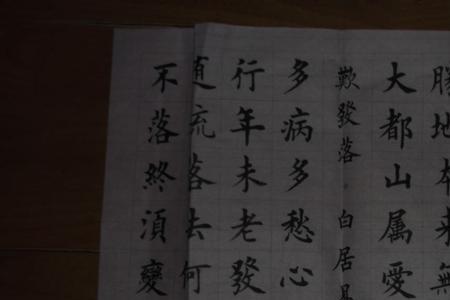 勝地本来無
大都山属愛
歎發落 白居易
多病多愁心
行年未老發
随流落去何
不落終須變